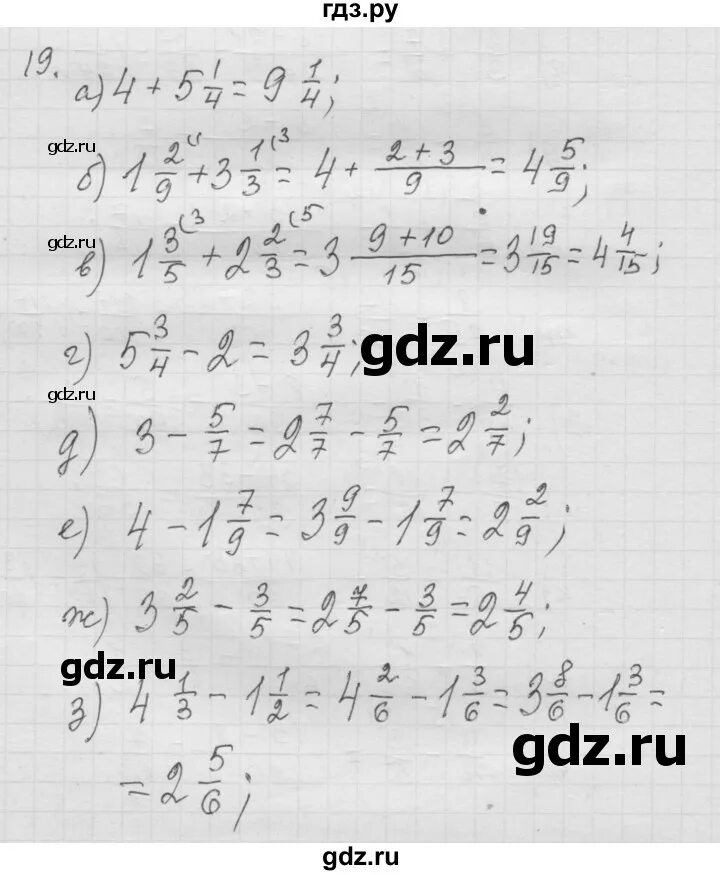 гдз.ру
19.
а) 4 + 5 1/4 = 9 1/4;
gdz.ru
б) 1 2/9 (1 + 3 1/3 (3 = 4 + (2+3)/9 = 4 5/9;
gdz.ru
в) 1 3/5 (3 + 2 2/3 (5 = 3 (9+10)/15 = 3 19/15 = 4 4/15;
г) 5 3/4 - 2 = 3 3/4;
gdz.ru
gdz.ru
д) 3 - 5/7 = 2 7/7 - 5/7 = 2 2/7;
е) 4 - 1 7/9 = 3 9/9 - 1 7/9 = 2 2/9;
ж) 3 2/5 - 3/5 = 2 7/5 - 3/5 = 2 4/5;
gdz.ru
з) 4 1/3 - 1 1/2 = 4 2/6 - 1 3/6 = 3 8/6 - 1 3/6 =
gdz.ru
= 2 5/6;
gdz.ru